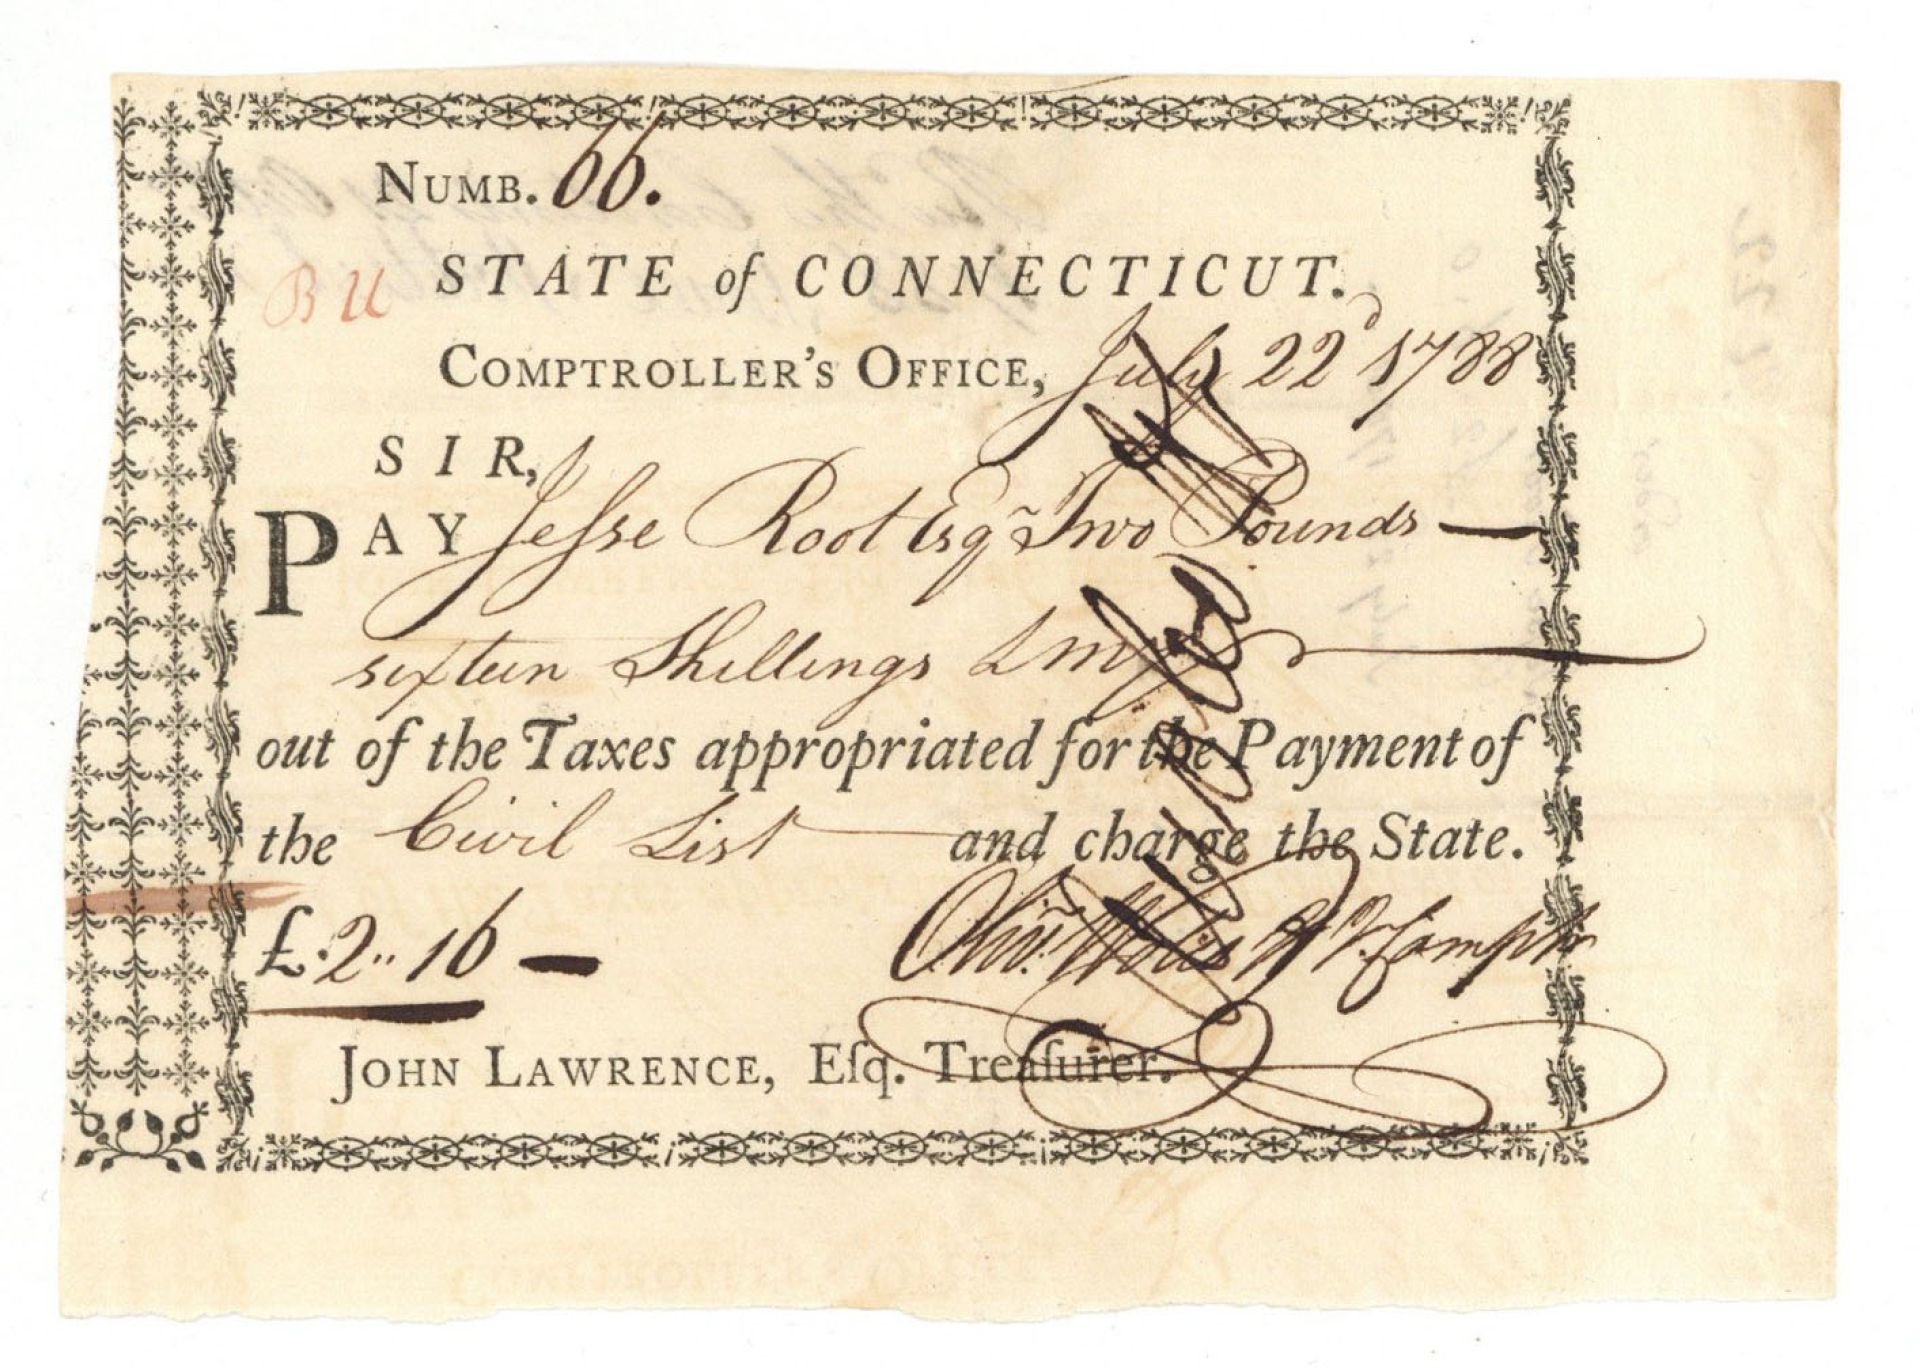 NUMB. 66.
STATE of CONNECTICUT.
B U
COMPTROLLER'S OFFICE, July 22d 1788
SIR,
PAY Jeſse Root Esqr Two Pounds —
sixteen Shillings LMy
out of the Taxes appropriated for the Payment of
the Civil List and charge the State.
£. 2.. 16 —
Wolcott Jr. Comptr
JOHN LAWRENCE, Eſq. Treaſurer.